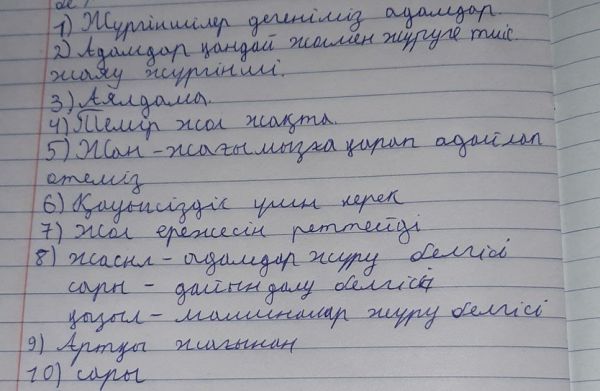 1) Жүргіншілер дегеніміз адамдар.
2) Адамдар қандай жолмен жүруге тиіс.
жаяу жүргінші.
3) Аялдама.
4) Темір жол жақта.
5) Жан-жағымызға қарап абайлап
өтеміз
6) Қауіпсіздік үшін керек
7) Жол ережесін реттейді
8) жасыл - адамдар жүру белгісі
сары - дайындалу белгісі
қызыл - машиналар жүру белгісі
9) Артқы жағынан
10) сары